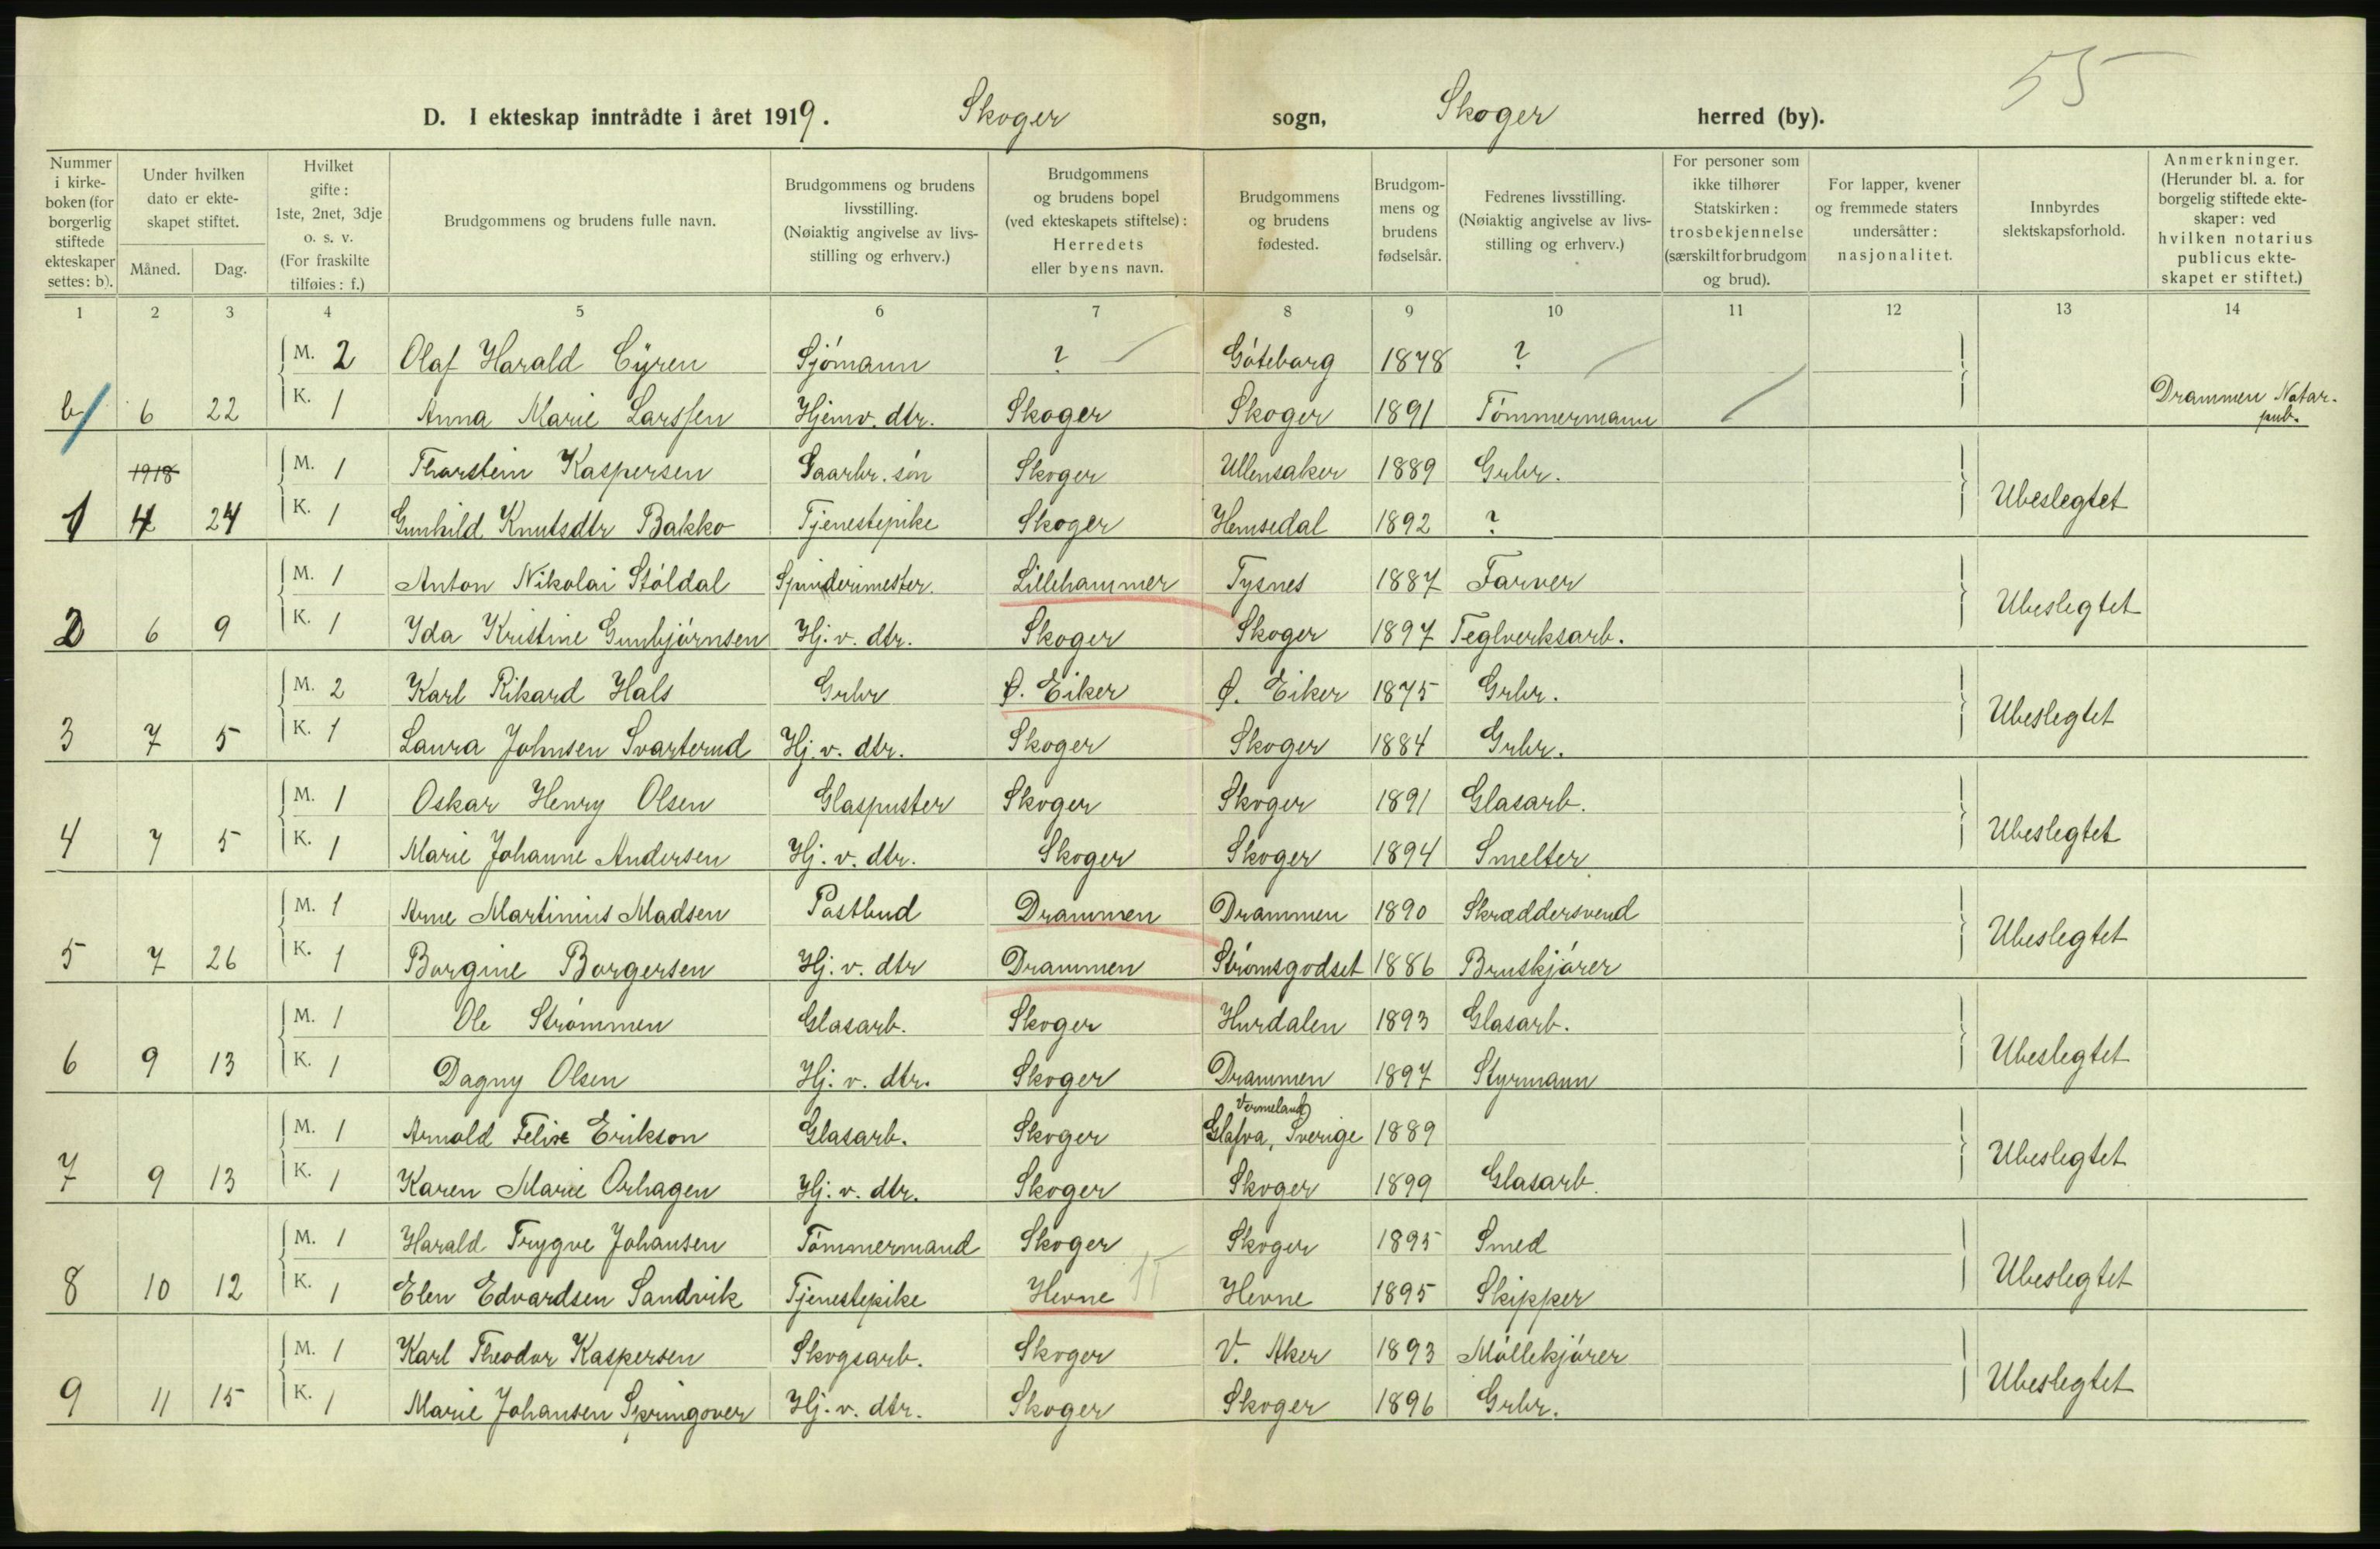 55
D. I ekteskap inntrådte i året 1919. Skoger sogn, Skoger herred (by).
Nummer i kirkeboken (for borgerlig stiftede ekteskaper settes: b).
Under hvilken dato er ekteskapet stiftet.
Måned. Dag.
Hvilket gifte: 1ste, 2net, 3dje o. s. v. (For fraskilte tilføies: f.)
Brudgommens og brudens fulle navn.
Brudgommens og brudens livsstilling. (Nøiaktig angivelse av livsstilling og erhverv.)
Brudgommens og brudens bopel (ved ekteskapets stiftelse): Herredets eller byens navn.
Brudgommens og brudens fødested.
Brudgommens og brudens fødselsår.
Fedrenes livsstilling. (Nøiaktig angivelse av livsstilling og erhverv.)
For personer som ikke tilhører Statskirken: trosbekjennelse (særskilt for brudgom og brud).
For lapper, kvener og fremmede staters undersåtter: nasjonalitet.
Innbyrdes slektskapsforhold.
Anmerkninger. (Herunder bl. a. for borgelig stiftede ekteskaper: ved hvilken notarius publicus ekteskapet er stiftet.)
1 2 3 4 5 6 7 8 9 10 11 12 13 14
M. 2 Olaf Harald Cÿren Sjömann ? Göteborg 1878 ?
b 6 22 K. 1 Anna Marie Larssen Hjemv. dtr. Skoger Skoger 1891 Tömmermann Drammen Notar. pub.
1918 M. 1 Thorstein Kaspersen Gaarbr. sön Skoger Ullensaker 1889 Grbr.
1 4 24 K. 1 Gunhild Knutsdtr Bakko Tjenestepike Skoger Hemsedal 1892 ? Ubeslegtet
M. 1 Anton Nikolai Stöldal Spinderimester. Lillehammer Tysnes 1887 Farver
2 6 9 K. 1 Ida Kristine Gunbjörnsen Hj. v. dtr. Skoger Skoger 1897 Teglverksarb. Ubeslegtet
M. 2 Karl Rikard Hals Grbr Ø. Eiker Ø. Eiker 1875 Grbr.
3 7 5 K. 1 Laura Johnsen Svarterud Hj. v. dtr. Skoger Skoger 1884 Grbr. Ubeslegtet
M. 1 Oskar Henry Olsen Glaspuster Skoger Skoger 1891 Glasarb.
4 7 5 K. 1 Marie Johanne Andersen Hj. v. dtr. Skoger Skoger 1894 Smelter Ubeslegtet
M. 1 Arne Martinius Madsen Postbud Drammen Drammen 1890 Skræddersvend
5 7 26 K. 1 Borgine Borgersen Hj. v. dtr Drammen Strömsgodset 1886 Bruskjörer Ubeslegtet
M. 1 Ole Strömmen Glasarb. Skoger Hurdalen 1893 Glasarb.
6 9 13 K. 1 Dagny Olsen Hj. v. dtr. Skoger Drammen 1897 Styrmann Ubeslegtet
M. 1 Arnold Felix Erikson Glasarb. Skoger Vermeland Glafva, Sverige 1889
7 9 13 K. 1 Karen Marie Orhagen Hj. v. dtr. Skoger Skoger 1899 Glasarb. Ubeslegtet
M. 1 Harald Trygve Johansen Tömmermand Skoger Skoger 1895 Smed
8 10 12 K. 1 Elen Edvardsen Sandvik Tjenestepike Hevne Hevne 1895 Skipper Ubeslegtet
M. 1 Karl Theodor Kaspersen Skogsarb. Skoger V. Aker 1893 Möllekjörer
9 11 15 K. 1 Marie Johansen Springover Hj. v. dtr. Skoger Skoger 1896 Grbr. Ubeslegtet